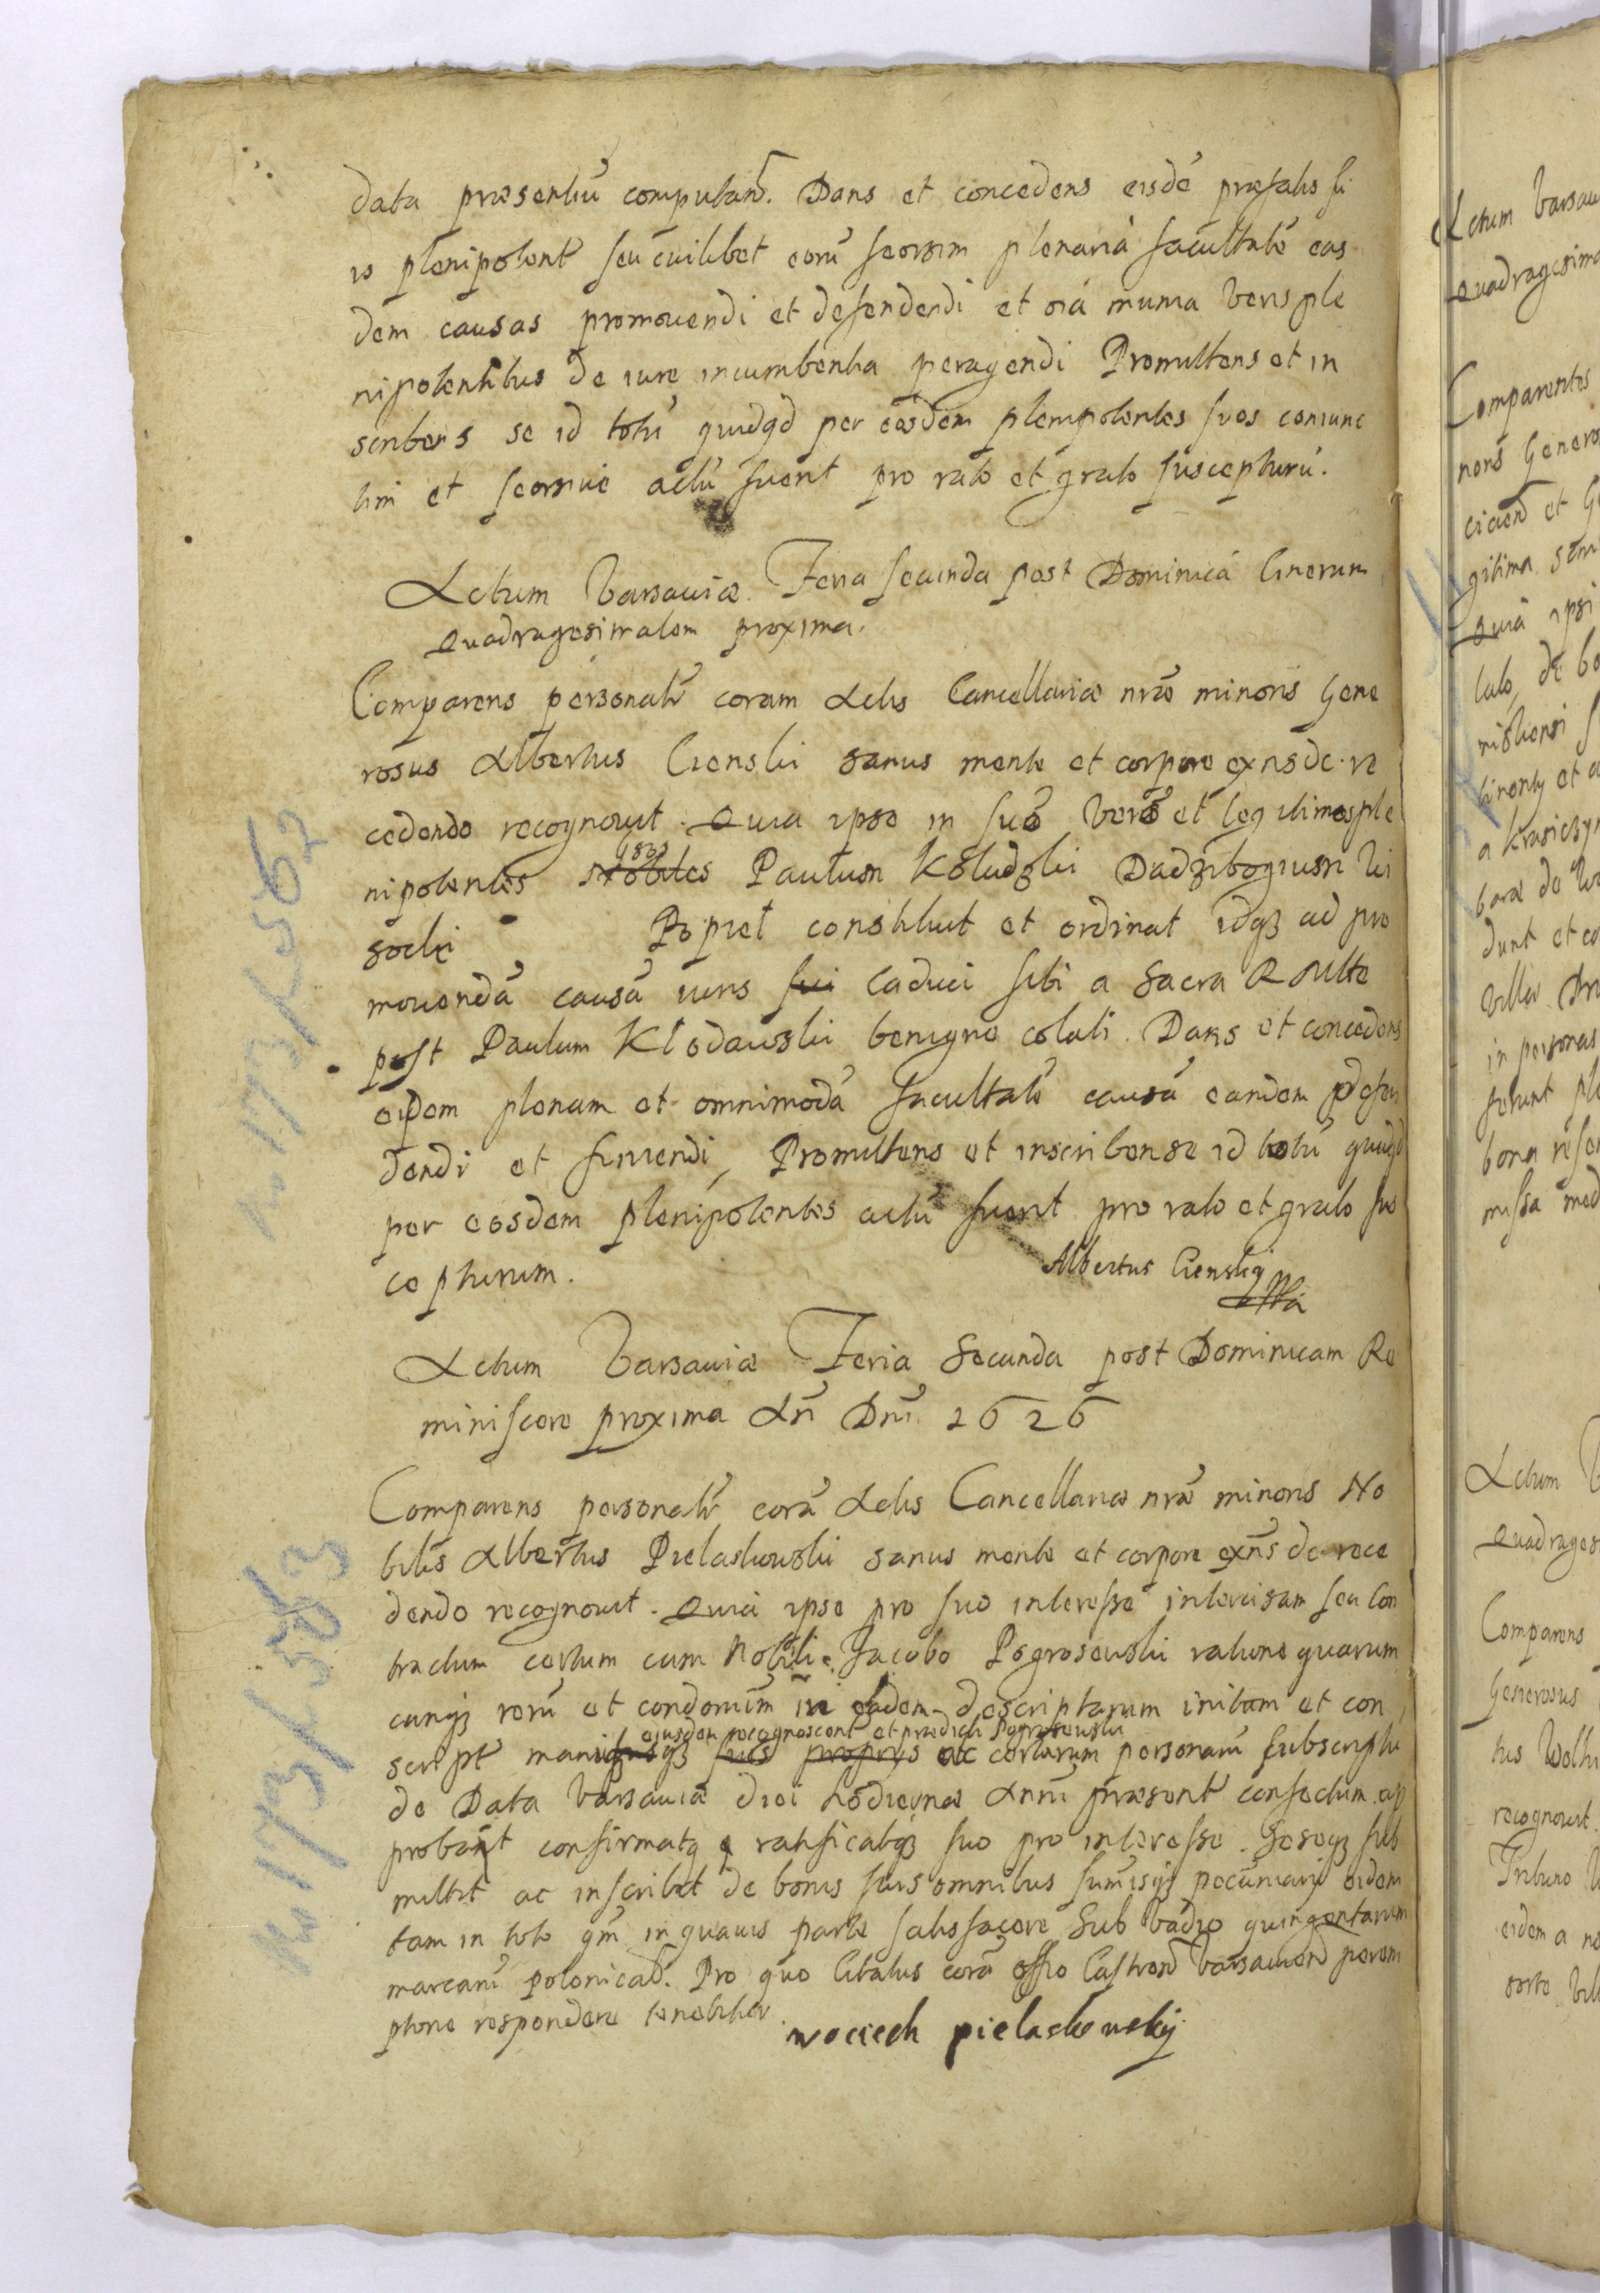 data præsentiũ computand. Dans et concedens eisdẽ præfatis su
is plenipotent seu cuilibet eorũ seorsim plenariã facultatẽ eas
dem causas promouendi et defendendi et oĩa munia veris ple
nipotentibus de iure incumbentia peragendi Promittens et in
scribens se id totũ quidqd per eosdem plenipotentes suos coniunc
tim et seorsiue actũ fuerit pro rato et grato suscepturũ.
Actum Varsauiæ Feria secunda post Dominicã Cinerum
Quadragesimalem proxima.
Comparens personalr coram Actis Cancellariæ nræ minoris Gene
rosus Albertus Cienski sanus mente et corpore exns de re
cedendo recognouit. Quia ipse in suos veros et legitimos ple
nipotentes nobiles Paulum Koludzki Dadzibogium Wi
socki Popiel constituit et ordinat idqȝ ad pro
mouendã causã iuris sui caduci sibi a Sacra R Mtte
post Paulum Klodawski benigne colati. Dans et concedens
eisdem plenam et omnimodã facultatẽ causã eandem defen
dendi et finiendi, Promittens et inscribens se id totũ quidqd
per eosdem plenipotentes actũ fuerit pro rato et grato sus
cepturum.
Albertus Cienskij
Actum Varsauiæ Feria Secunda post Dominicam Re
miniscere proxima An Dni 1626
Comparens personalr corã Actis Cancellariæ nræ minoris No
bilis Albertus Pielaskowski sanus mente et corpore exñs de rece
dendo recognouit. Quia ipse pro suo interesse intercisam seu Con
tractum certum cum Nobili Jacobo Pogroszewski ratione quarum
cunqȝ rerũ et condonũm in eadem descriptarum initam et con
eiusdem recognoscent et prædicti Pogroszewski
script manibusqȝ suis proprys ac certarum personarũ subscripti
de Data Varsauiæ diei hodiernæ Anni præsent confectum ap
probat confirmatq ratificatqȝ suo pro interesse. Seseqȝ sub
mittit ac inscribit de bonis suis omnibus sum̃isqȝ pecuniarys eidem
tam in toto qm in quauis parte satisfacere Sub vadio quingentarum
marcarũ polonicad. Pro quo Citatus corã offio Castrend Varsauiend perem
ptorie respondere tenebitur.
wociech pielaskowskij
N. 173/K 562
N. 173/ 563
Actum Varsau
Quadragesima
Comparentes
noris Generos
et
gitima
Quia ipsi
de bo
in personas
bona
missa med
Actum V
Quadrages
Comparens
Generosus
tus Wolski
recognouit.
Tributo
eidem a no